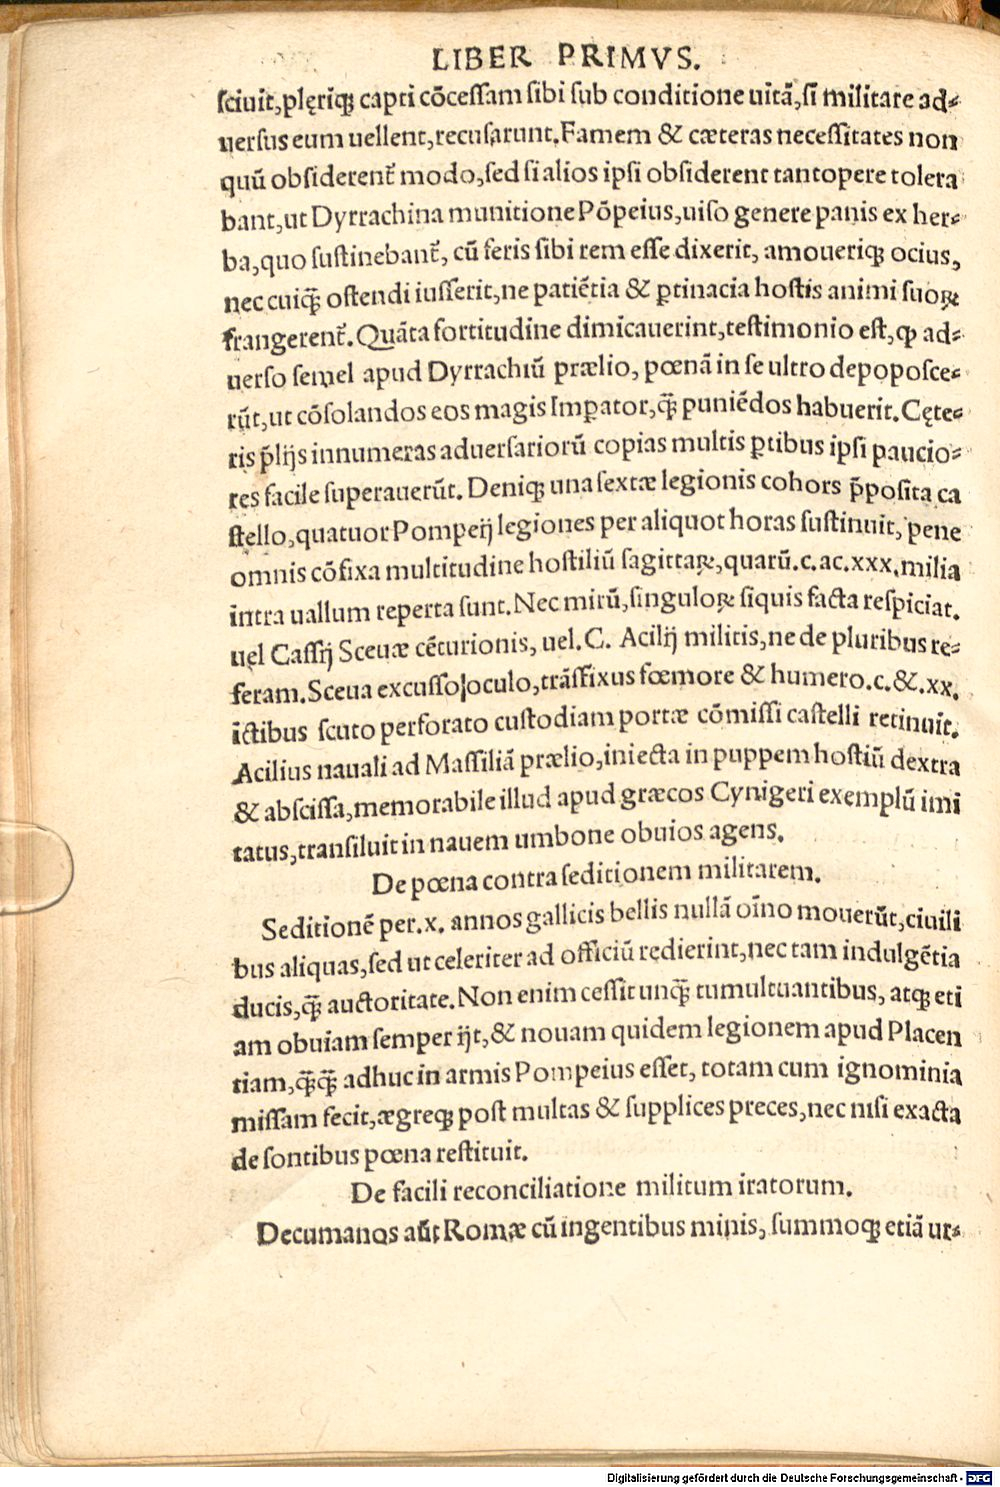 LIBER PRIMVS.
ſciuit,plęriq; capti cōceſſam ſibi ſub conditione uitā,ſi militare ad⸗
uerſus eum uellent,recuſarunt.Famem & cæteras neceſſitates non
quū obſiderent᷑ modo,ſed ſi alios ipſi obſiderent tantopere tolera
bant,ut Dyrrachina munitione Pōpeius,uiſo genere panis ex her⸗
ba,quo ſuſtinebant᷑, cū feris ſibi rem eſſe dixerit, amoueriq; ocius,
nec cuiq̄ȝ oſtendi iuſſerit,ne patiētia & ꝑtinacia hoſtis animi ſuoꝝ
frangerent᷑.Quāta fortitudine dimicauerint,teſtimonio eſt,ꝙ ad⸗
uerſo ſemel apud Dyrrachiū prælio, pœnā in ſe ultro depopoſce⸗
rūt,ut cōſolandos eos magis Imꝑator,q̄ȝ puniēdos habuerit.Cęte⸗
ris p̄lijs innumeras aduerſariorū copias multis ꝑtibus ipſi paucio⸗
res facile ſuperauerūt.Deniq; una ſextæ legionis cohors p̄poſita ca
ſtello,quatuor Pompeij legiones per aliquot horas ſuſtinuit, pene
omnis cōfixa multitudine hoſtiliū ſagittaꝝ,quarū.c.ac.xxx.milia
intra uallum reperta ſunt.Nec mirū,ſinguloꝝ ſiquis facta reſpiciat.
uel Caſſij Sceuæ cēturionis, uel.C. Acilij militis,ne de pluribus re⸗
feram.Sceua excuſſo oculo,trāſfixus fœmore & humero.c.&.xx.
ictibus ſcuto perforato cuſtodiam portæ cōmiſſi caſtelli retinuit.
Acilius nauali ad Maſſiliā prælio,iniecta in puppem hoſtiū dextra
& abſciſſa,memorabile illud apud græcos Cynigeri exemplū imi
tatus,tranſiluit in nauem umbone obuios agens.
De pœna contra ſeditionem militarem.
Seditionē per.x. annos gallicis bellis nullā oīno mouerūt,ciuili
bus aliquas,ſed ut celeriter ad officiū redierint,nec tam indulgētia
ducis,q̄ȝ auctoritate.Non enim ceſſit unq̄ȝ tumultuantibus, atq; eti
am obuiam ſemper ijt,& nouam quidem legionem apud Placen
tiam,q̄ȝq̄ȝ adhuc in armis Pompeius eſſet, totam cum ignominia
miſſam fecit,ægreq; poſt multas & ſupplices preces,nec niſi exacta
de ſontibus pœna reſtituit.
De facili reconciliatione militum iratorum.
Decumanos aūt Romæ cū ingentibus minis, ſummoq; etiā ur⸗
Digitalisierung gefördert durch die Deutsche Forschungsgemeinschaft - DFG